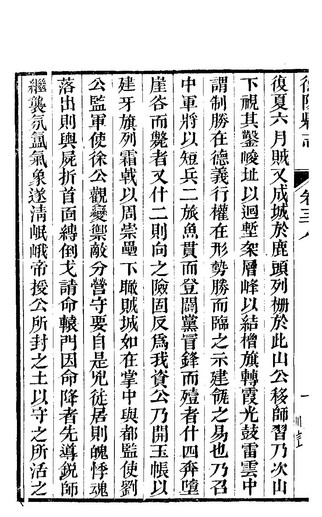 卷三八
復夏六月賊又成城於鹿頭列柵於此山公移師習乃次山
下視其鑿峻址以迴塹架層峰以結櫓旗轉霞光鼓雷雲中
謂制勝在德義行權在形勢勝而臨之示建瓴之易也乃召
中軍將以短兵二旅魚貫而登鬪黨冒鋒而殪者什四奔墮
崖谷而斃者又什二則向之險固反為我資公乃開玉帳以
建牙旗列霜戟以周崇壘下瞰賊城如在掌中與都監使劉
公監軍使徐公觀變禦敵分營守要自是兇徒居則魄悸魂
落出則輿屍折首面縛倒戈請命轅門因命降者先導銳師
繼襲氛氳氣象遂清岷峨帝授公所封之土以守之所活之